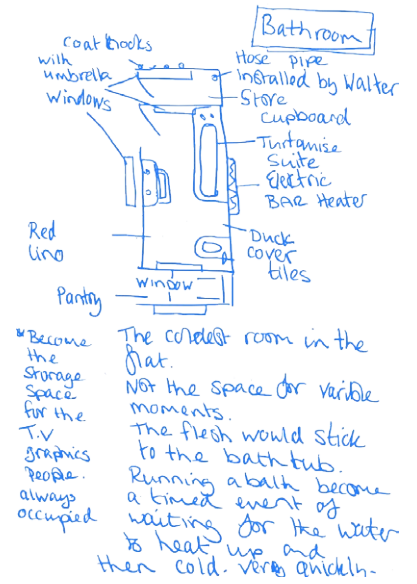 Bathroom
coat hooks
with
umbrella
windows
Hose pipe
installed by Walter
Store
cupboard
Turtquise
Suite
Electric
BAR Heater
Red
Lino
Duck
cover
tiles
window
Pantry
*Become
the
storage
space
for the
T.V
graphics
People.
always
occupied
The coldest room in the
flat.
Not the space for varible
moments.
The flesh would stick
to the bath tub.
Running a bath become
a timed event of
waiting for the water
to heat up and
then cold. very quickly.